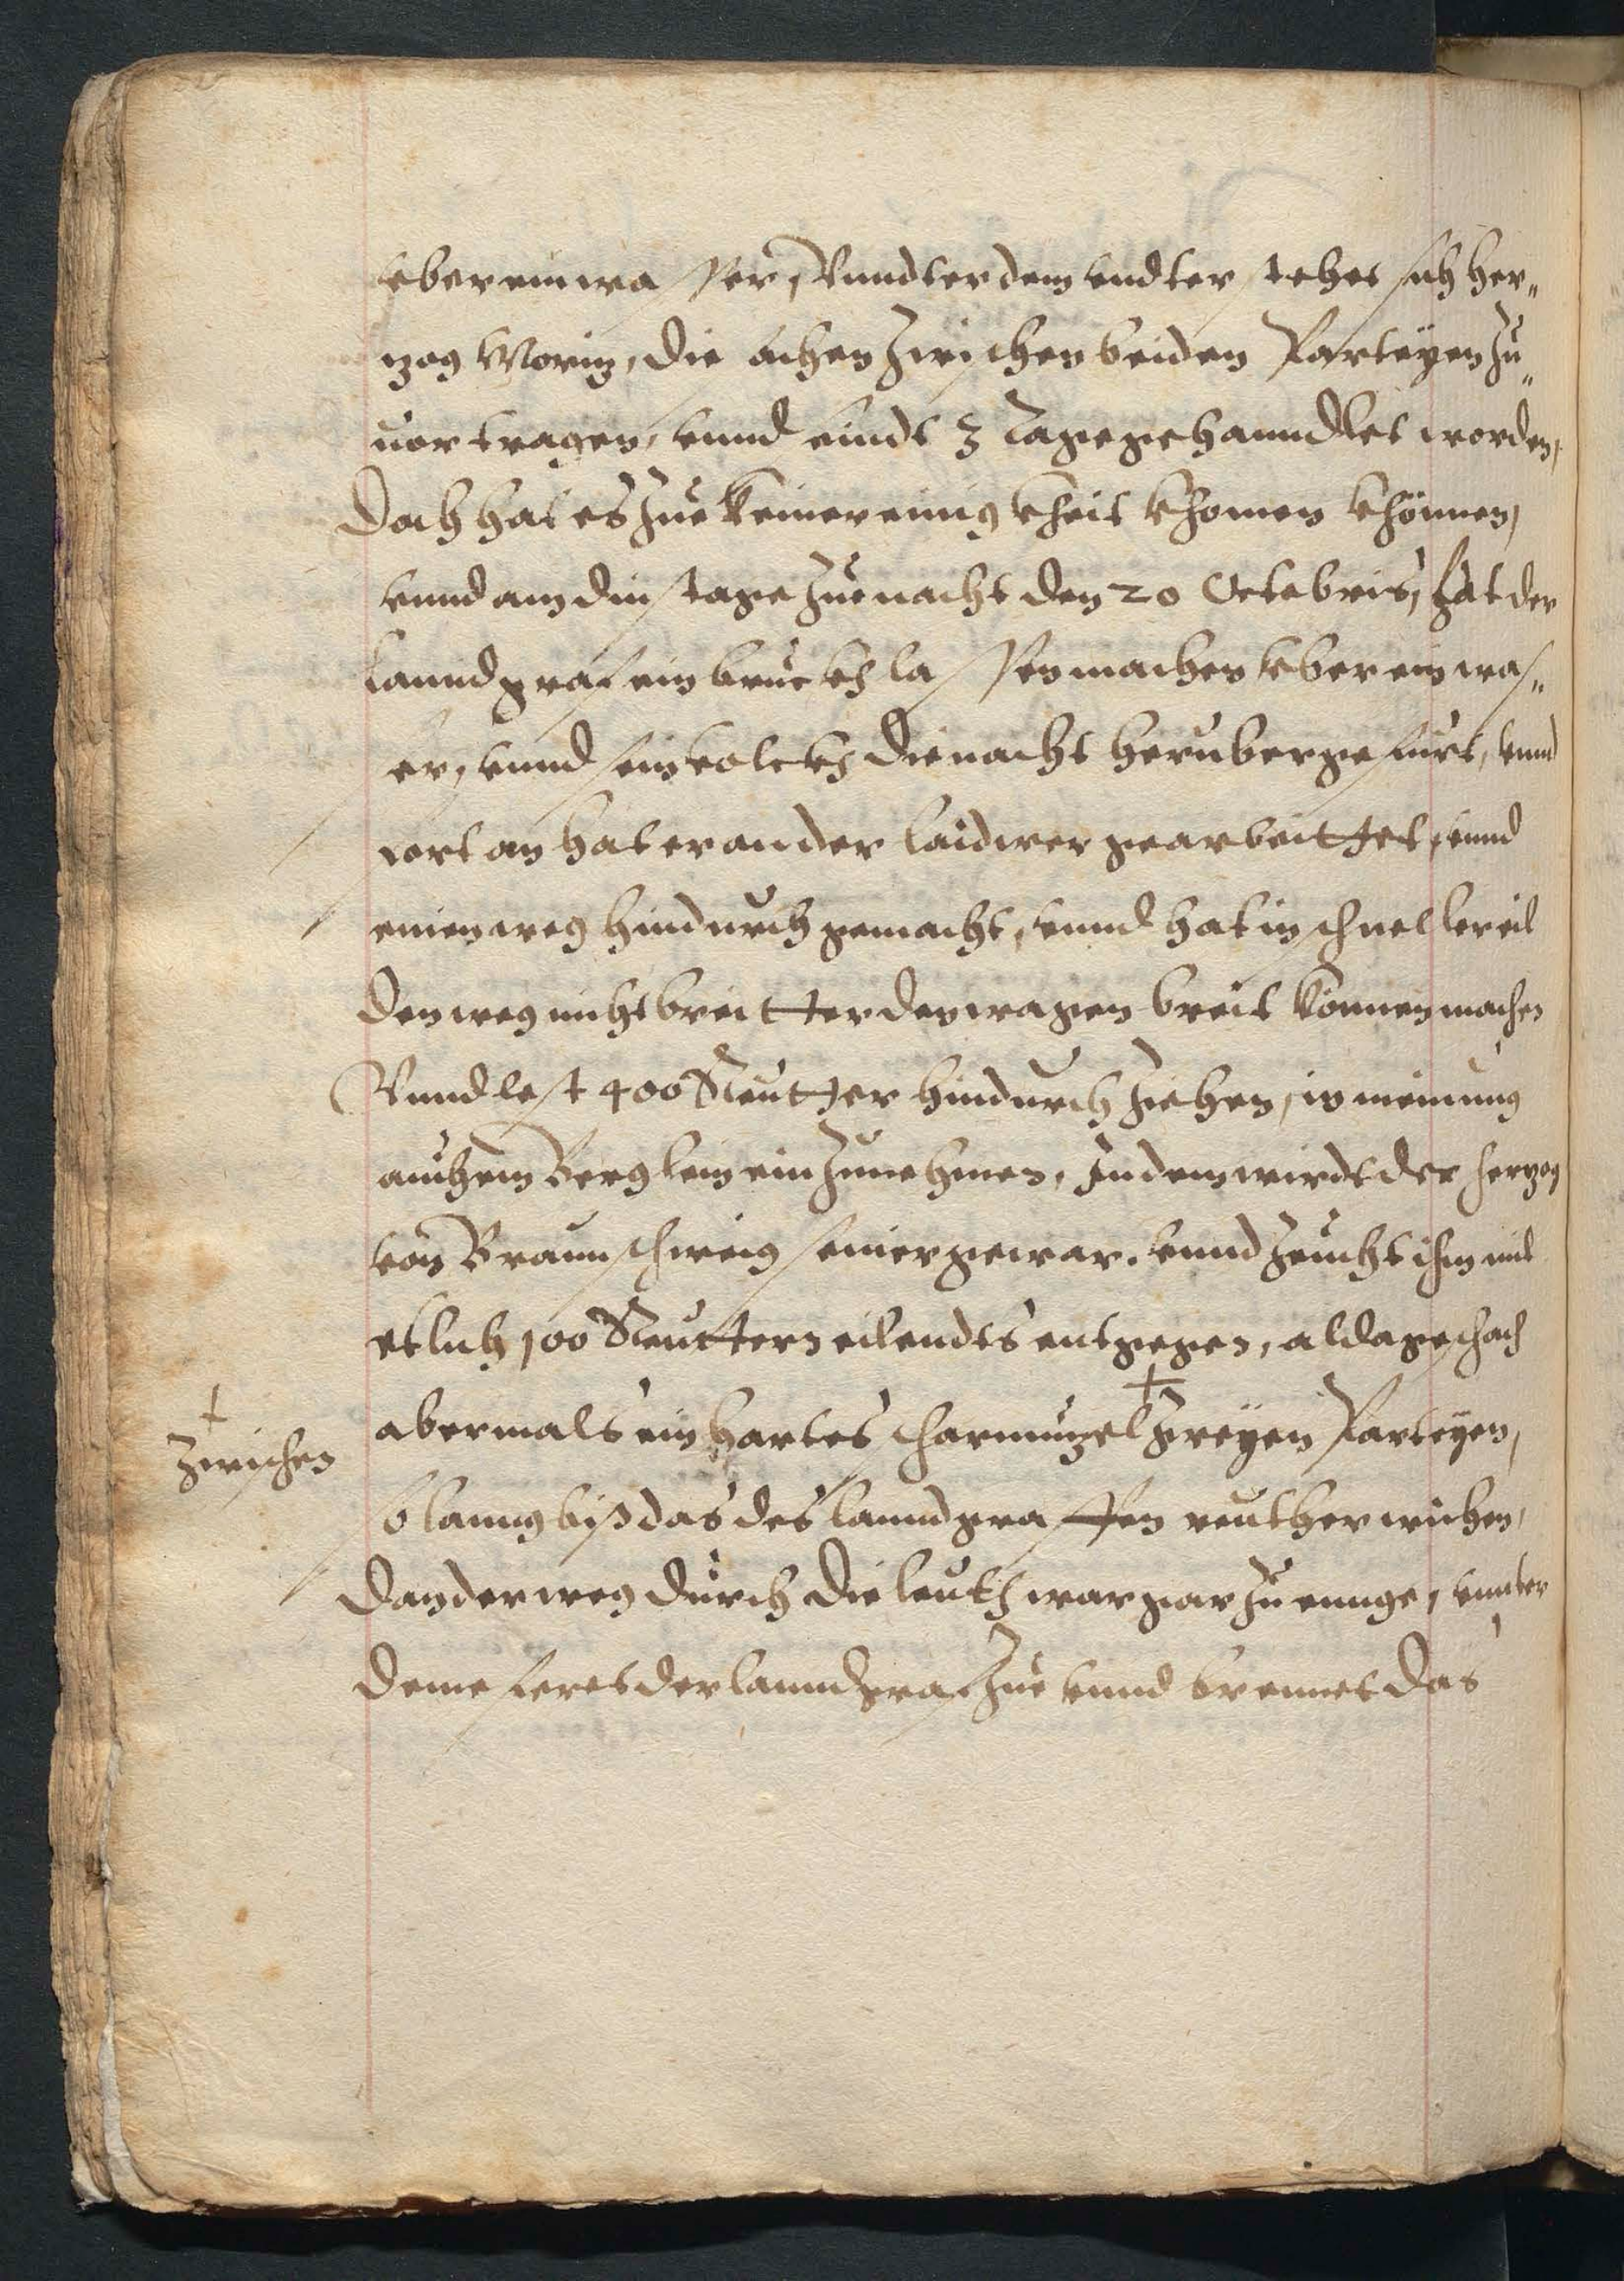 vber ein wasser, Vnndter dem vndterstehet sich her„
zog Moriz, die sachen zwischen beiden Parteyen zu„
uor tragen, vnnd sindt 3 Tage gehanndlet worden,
Doch hat es zue keiner einigkheit khomen khönnen,
vnnd am dinstage zue nacht den 20 Octobris, hat der
lanndgraf ein bruckh lassen machen vber ein was„
ser, vnnd sein volckh die nacht heruber gefürt, vnnd
fort an hat er an der laidwer gearbeittet, vnnd
einen weg hindurch gemacht, vnnd hat in schneller eil
den weg nicht breitter den wagen breit können machen
Vnnd lest 400 Reutter hindurch ziehen, in meinung
auch ein Berglein ein zunehmen, In dem wirdt der herzog
von Braunschweig seiner gewar. vnnd zeucht ihm mit
etlich 100 Reuttern eilendts entgegen, alda geschach
abermals ein hartes scharmuzel + zweyen Parteyen,
+ zwischen
so lanng biß das des lanndgraffen reuther wichen,
Dan der weg durch die leuth war gar zuennge, vnnter
deme feret der lanndgraf zue vnnd brennet das